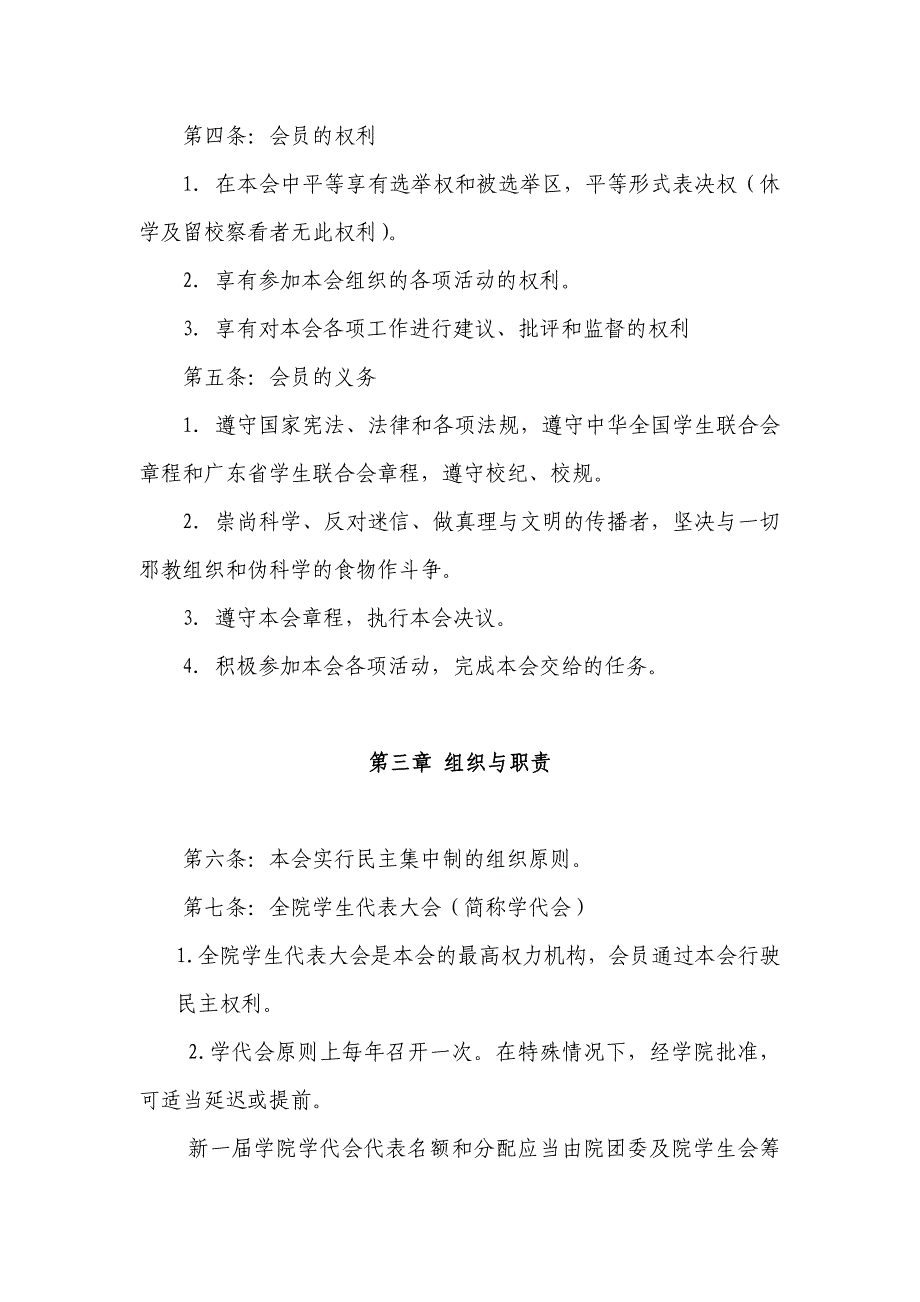 第四条：会员的权利
1. 在本会中平等享有选举权和被选举区，平等形式表决权（休
学及留校察看者无此权利）。
2. 享有参加本会组织的各项活动的权利。
3. 享有对本会各项工作进行建议、批评和监督的权利
第五条：会员的义务
1. 遵守国家宪法、法律和各项法规，遵守中华全国学生联合会
章程和广东省学生联合会章程，遵守校纪、校规。
2. 崇尚科学、反对迷信、做真理与文明的传播者，坚决与一切
邪教组织和伪科学的食物作斗争。
3. 遵守本会章程，执行本会决议。
4. 积极参加本会各项活动，完成本会交给的任务。
第三章 组织与职责
第六条：本会实行民主集中制的组织原则。
第七条：全院学生代表大会（简称学代会）
1.全院学生代表大会是本会的最高权力机构，会员通过本会行驶
民主权利。
2.学代会原则上每年召开一次。在特殊情况下，经学院批准，
可适当延迟或提前。
新一届学院学代会代表名额和分配应当由院团委及院学生会筹